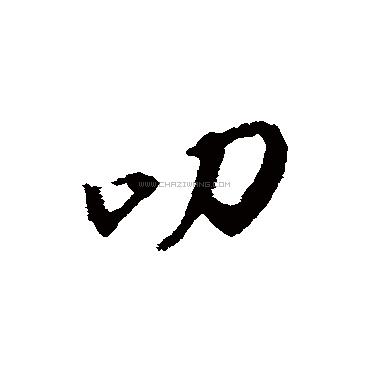 叨
WWW.CHAZIWANG.COM